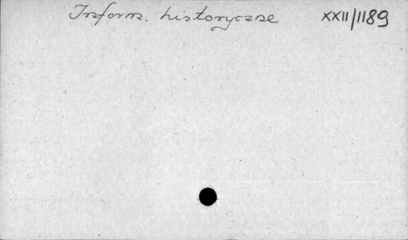 Inform. historyczne XXII/1189